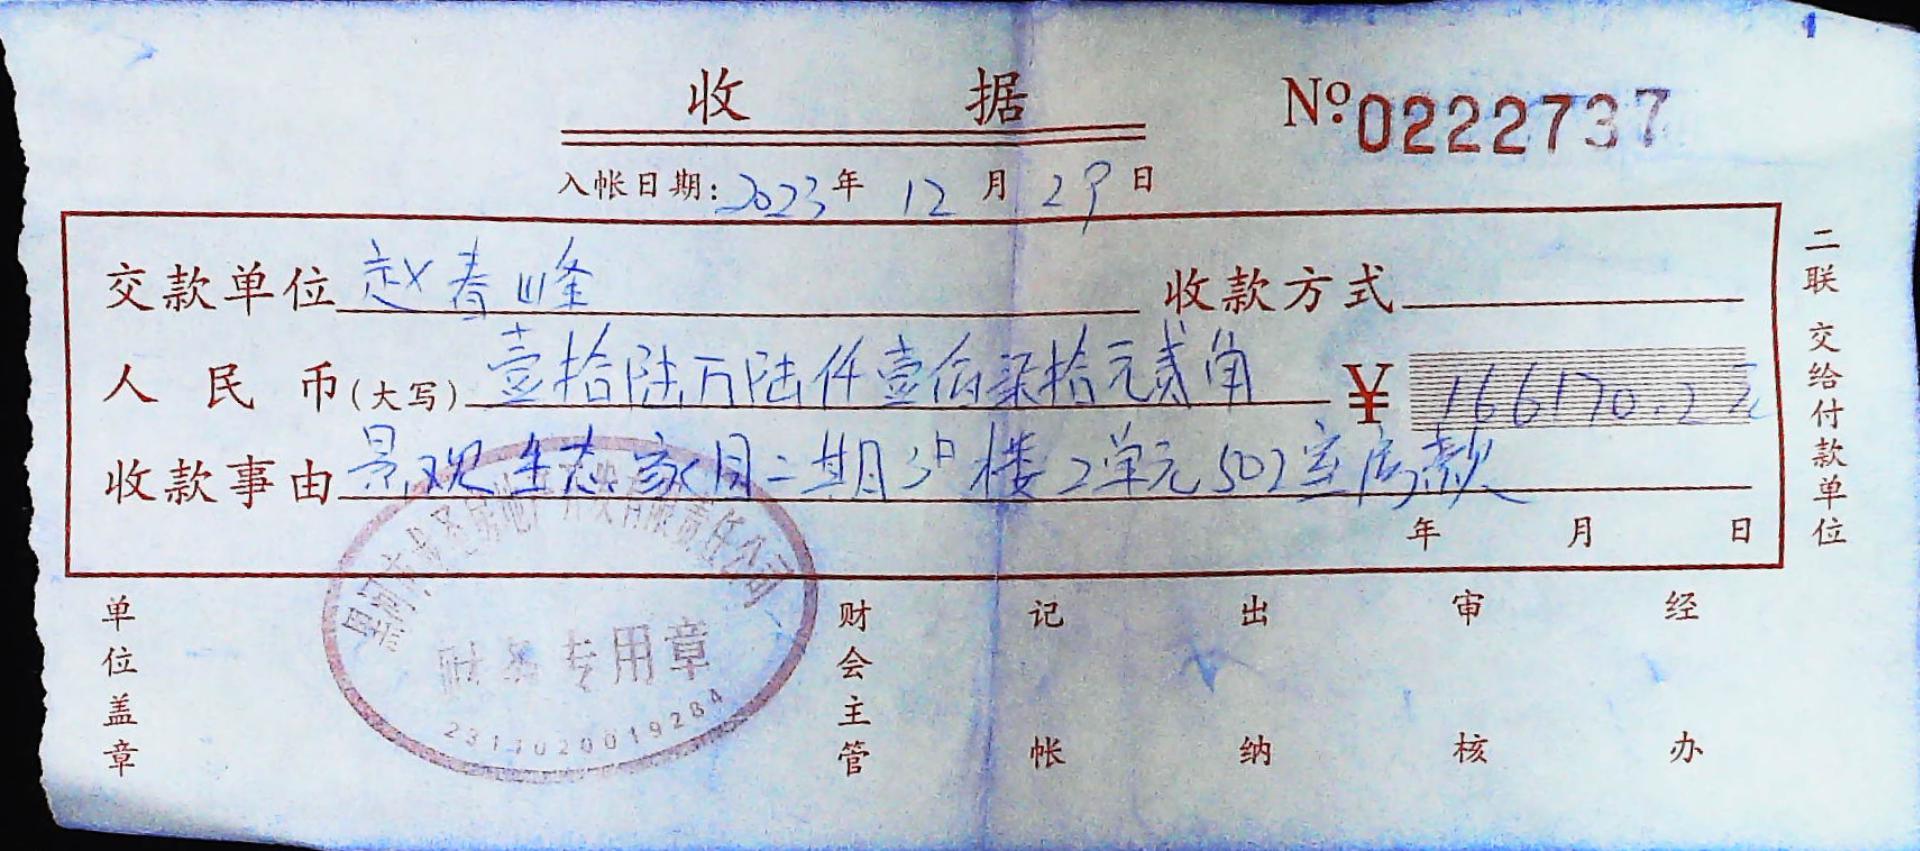 收 据
№ 0222737
入帐日期: 2023 年 12 月 29 日
交款单位 赵春峰 收款方式
人民币(大写) 壹拾陆万陆仟壹佰柒拾元贰角 ¥ 166170.2元
收款事由 景观生态家园二期3#楼2单元502室房款
年 月 日
二联 交给付款单位
市城区房地产开发有限责任公司
财务专用章
2311020019284
单位盖章 财会主管 记帐 出纳 审核 经办